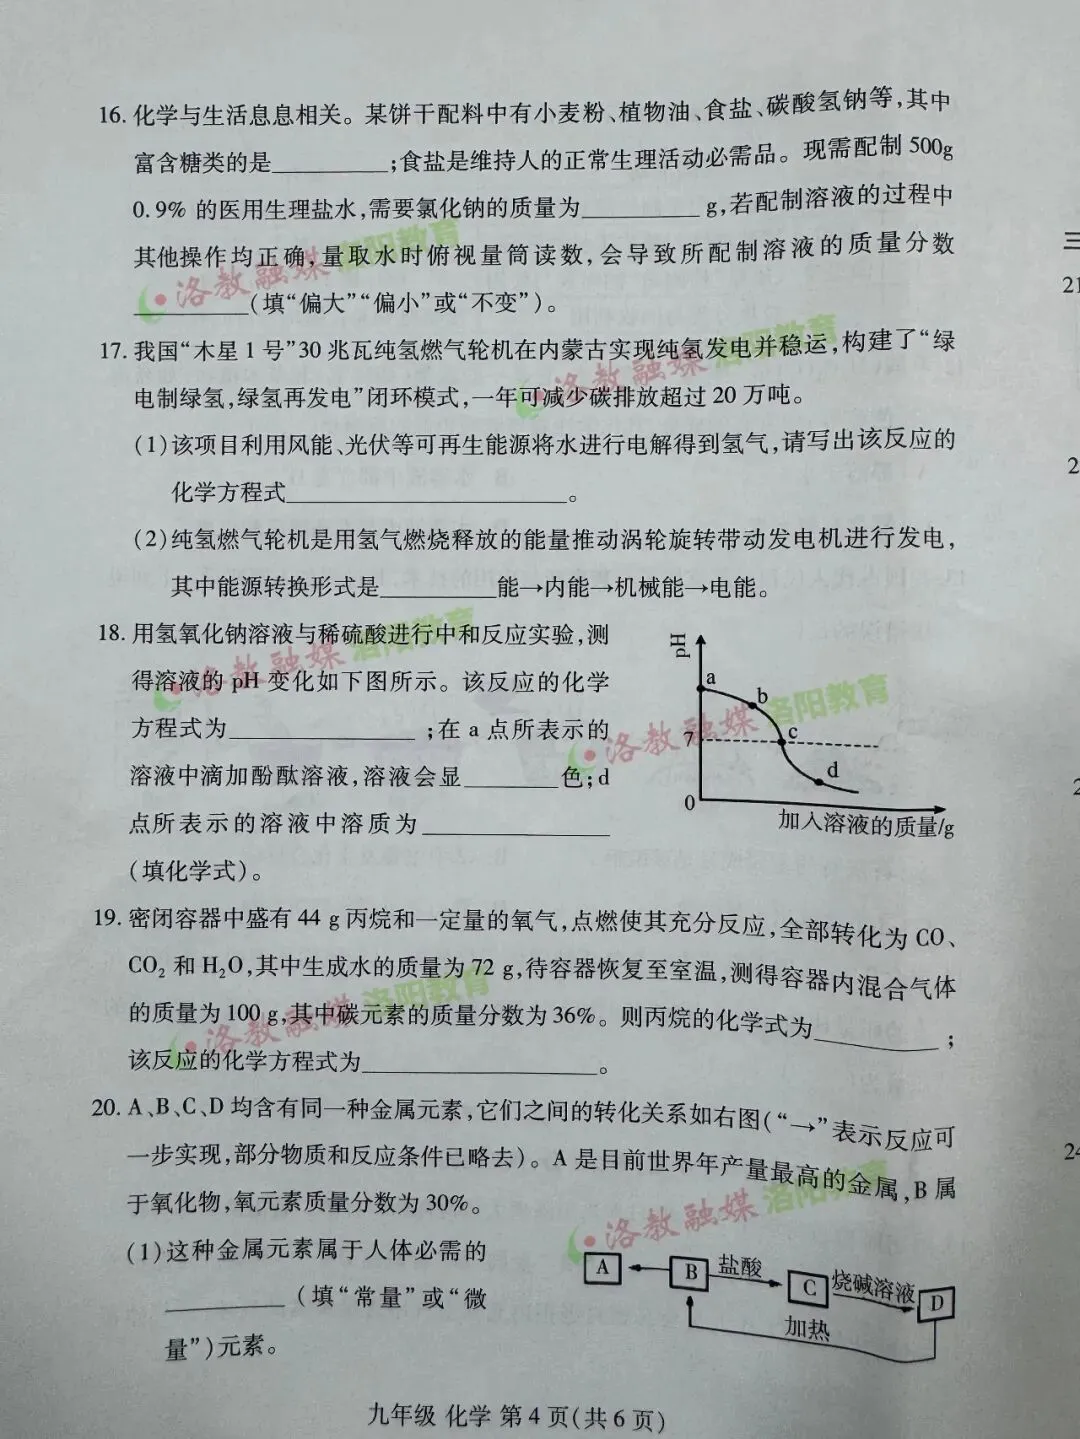 16. 化学与生活息息相关。某饼干配料中有小麦粉、植物油、食盐、碳酸氢钠等,其中
富含糖类的是__________;食盐是维持人的正常生理活动必需品。现需配制 500g
0.9% 的医用生理盐水,需要氯化钠的质量为__________ g,若配制溶液的过程中
其他操作均正确,量取水时俯视量筒读数,会导致所配制溶液的质量分数
__________(填“偏大”“偏小”或“不变”)。
17. 我国“木星 1 号”30 兆瓦纯氢燃气轮机在内蒙古实现纯氢发电并稳运,构建了“绿
电制绿氢,绿氢再发电”闭环模式,一年可减少碳排放超过 20 万吨。
(1)该项目利用风能、光伏等可再生能源将水进行电解得到氢气,请写出该反应的
化学方程式________________________。
(2)纯氢燃气轮机是用氢气燃烧释放的能量推动涡轮旋转带动发电机进行发电,
其中能源转换形式是__________能→内能→机械能→电能。
18. 用氢氧化钠溶液与稀硫酸进行中和反应实验,测
得溶液的 pH 变化如下图所示。该反应的化学
方程式为________________;在 a 点所表示的
溶液中滴加酚酞溶液,溶液会显________色;d
点所表示的溶液中溶质为________________
(填化学式)。
pH
a
b
7
c
d
0
加入溶液的质量/g
19. 密闭容器中盛有 44 g 丙烷和一定量的氧气,点燃使其充分反应,全部转化为 CO、
CO₂ 和 H₂O,其中生成水的质量为 72 g,待容器恢复至室温,测得容器内混合气体
的质量为 100 g,其中碳元素的质量分数为 36%。则丙烷的化学式为__________;
该反应的化学方程式为____________________。
20. A、B、C、D 均含有同一种金属元素,它们之间的转化关系如右图(“→”表示反应可
一步实现,部分物质和反应条件已略去)。A 是目前世界年产量最高的金属,B 属
于氧化物,氧元素质量分数为 30%。
(1)这种金属元素属于人体必需的
__________(填“常量”或“微
量”)元素。
A
B
盐酸
C
烧碱溶液
D
加热
九年级 化学 第 4 页(共 6 页)
洛教融媒 洛阳教育
洛教融媒 洛阳教育
洛教融媒 洛阳教育
洛教融媒 洛阳教育
洛教融媒 洛阳教育
洛教融媒 洛阳教育
三
21
2
2
24